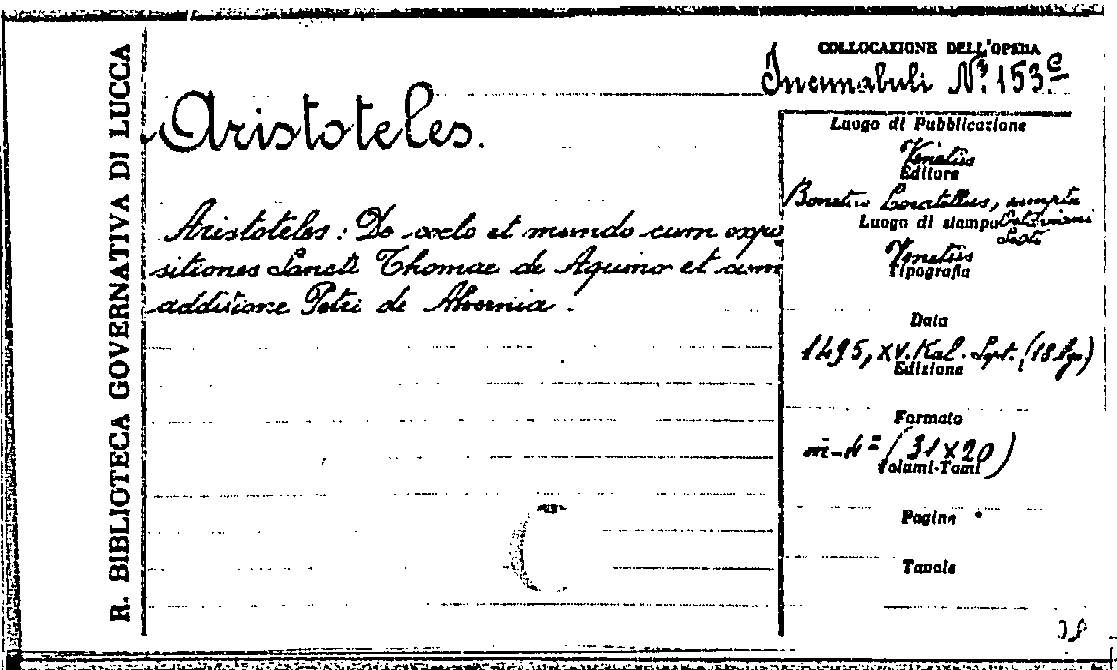 R. BIBLIOTECA GOVERNATIVA DI LUCCA
COLLOCAZIONE DELL'OPERA
Incunabuli Nº 153c
Aristoteles.
Aristoteles: De coelo et mundo cum expo
sitiones Sancti Thomae de Aquino et cum
additione Petri de Alvernia.
Luogo di Pubblicazione
Venetiis
Editore
Bonetus Locatellus, sumptu
Octaviani
Scoti
Luogo di stampa
Venetiis
Tipografia
Data
1495, XV. Kal. Sept. (18 Ag)
Edizione
Formato
in-4º (31 x 20)
Volumi-Tomi
Pagine
Tavole